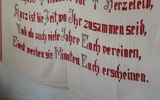 Herzeleid,
Kurz ist die Zeit, wo Ihr zusammen seid,
Und ob auch viele Jahre Euch vereinen,
Einst werden sie Minuten Euch erscheinen.